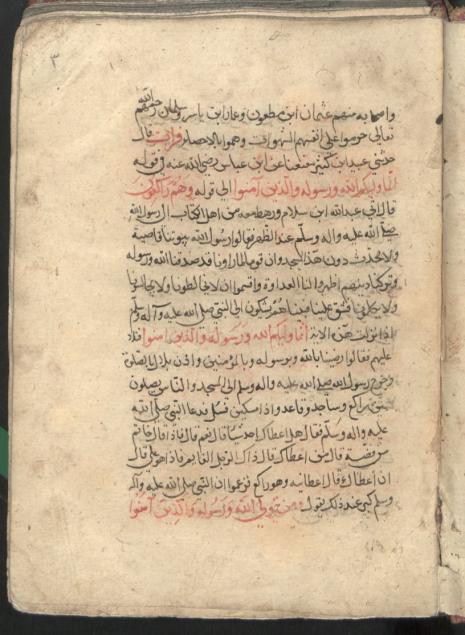 ٣
واصحابه منهم عثمان ابن مظعون وعمار ابن ياسر وسلمان رحمهم الله
تعالى حرموا على انفسهم الشهوات وهموا بالاخصاء فنزلت قال
حدثني عبيد ابن كثير معنعنا عن ابن عباس رضي الله عنه في قوله
انما وليكم الله ورسوله والذين آمنوا الى قوله وهم راكعون
قال اتى عبد الله ابن سلام ورهط معه من اهل الكتاب الى رسول الله
صلى الله عليه واله وسلم عند الظهر فقالوا يا رسول الله بيوتنا قاصية
ولا نجد محدثا دون هذا المسجد وان قومنا لما راونا قد صدقنا الله ورسوله
وتركنا دينهم اظهروا لنا العداوة واقسموا ان لا يخالطونا ولا يجالسونا
ولا يكلمونا فشق علينا فبينا هم يشكون الى النبي صلى الله عليه وآله وسلم
اذ نزلت هذه الاية انما وليكم الله ورسوله والذين امنوا فتلا
عليهم فقالوا رضينا بالله وبرسوله وبالمؤمنين واذن بلال بالصلاة
وخرج رسول الله صلى الله عليه واله وسلم الى المسجد والناس يصلون
بين راكع وساجد وقاعد واذا مسكين يسئل فدعا النبي صلى الله
عليه واله وسلم فقال هل اعطاك احد شيئا قال نعم قال ماذا قال خاتم
من فضة قال من اعطاك قال ذاك الرجل القايم فاذا هو علي قال
انى اعطاك قال اعطانيه وهو راكع فزعموا ان النبي صلى الله عليه واله
وسلم كبر عند ذلك يقول ومن يتولى الله ورسوله والذين آمنوا